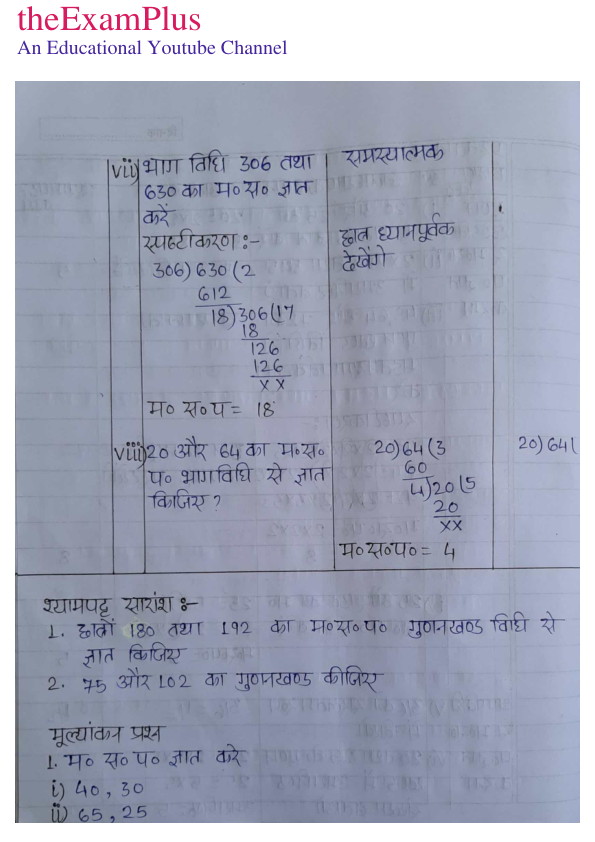 theExamPlus
An Educational Youtube Channel
vii) भाग विधि 306 तथा
630 का म० स० ज्ञात
करें
स्पष्टीकरण :-
306) 630 ( 2
612
18) 306 ( 17
18
126
126
x x
म० स० प = 18
समस्यात्मक
छात्र ध्यानपूर्वक
देखेंगे
viii) 20 और 64 का म० स०
प० भाग विधि से ज्ञात
किजिए ?
20) 64 ( 3
60
4) 20 ( 5
20
xx
म० स० प० = 4
20) 64 (
श्यामपट्ट सारांश :-
1. छात्रों 180 तथा 192 का म० स० प० गुणनखण्ड विधि से
ज्ञात किजिए
2. 75 और 102 का गुणनखण्ड कीजिए
मूल्यांकन प्रश्न
1. म० स० प० ज्ञात करे
i) 40, 30
ii) 65, 25